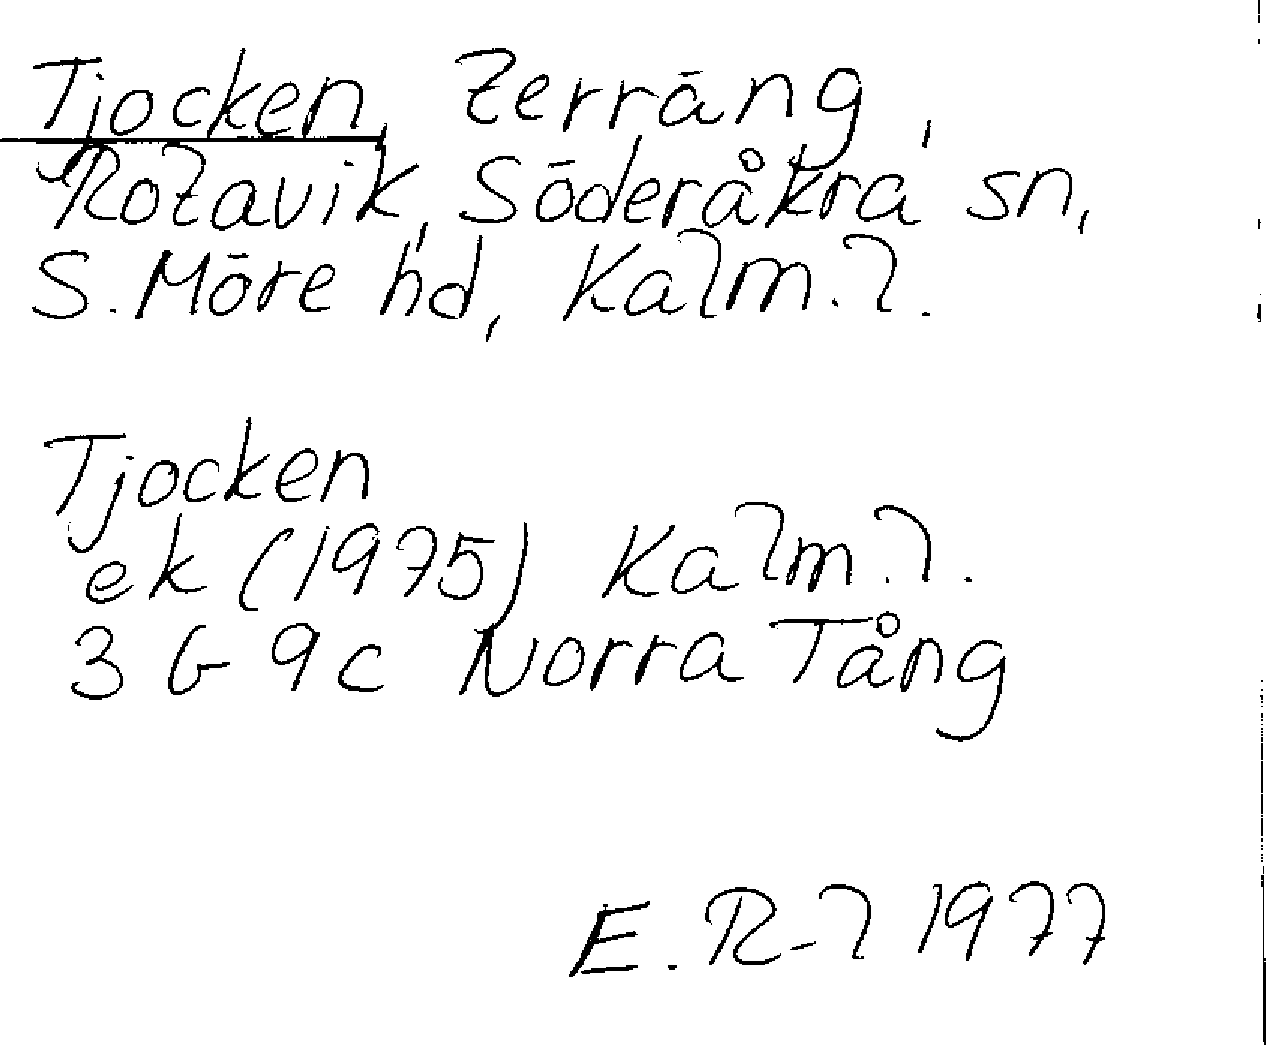 Tjocken, terräng,
Rotavik, Söderåkra sn,
S. Möre hd, Kalm. l.
Tjocken
ek (1975) Kalm. l.
3 G 9c Norra Tång
E. R-l 1977